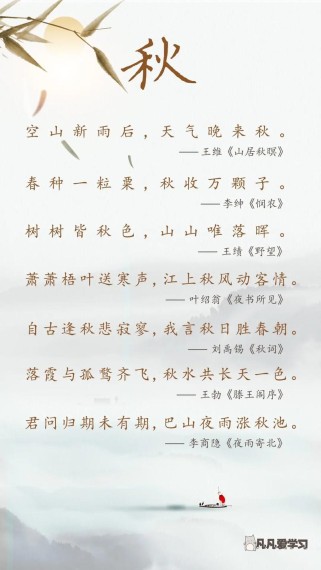 秋
空山新雨后，天气晚来秋。
——王维《山居秋暝》
春种一粒粟，秋收万颗子。
——李绅《悯农》
树树皆秋色，山山唯落晖。
——王绩《野望》
萧萧梧叶送寒声，江上秋风动客情。
——叶绍翁《夜书所见》
自古逢秋悲寂寥，我言秋日胜春朝。
——刘禹锡《秋词》
落霞与孤鹜齐飞，秋水共长天一色。
——王勃《滕王阁序》
君问归期未有期，巴山夜雨涨秋池。
——李商隐《夜雨寄北》
凡凡爱学习